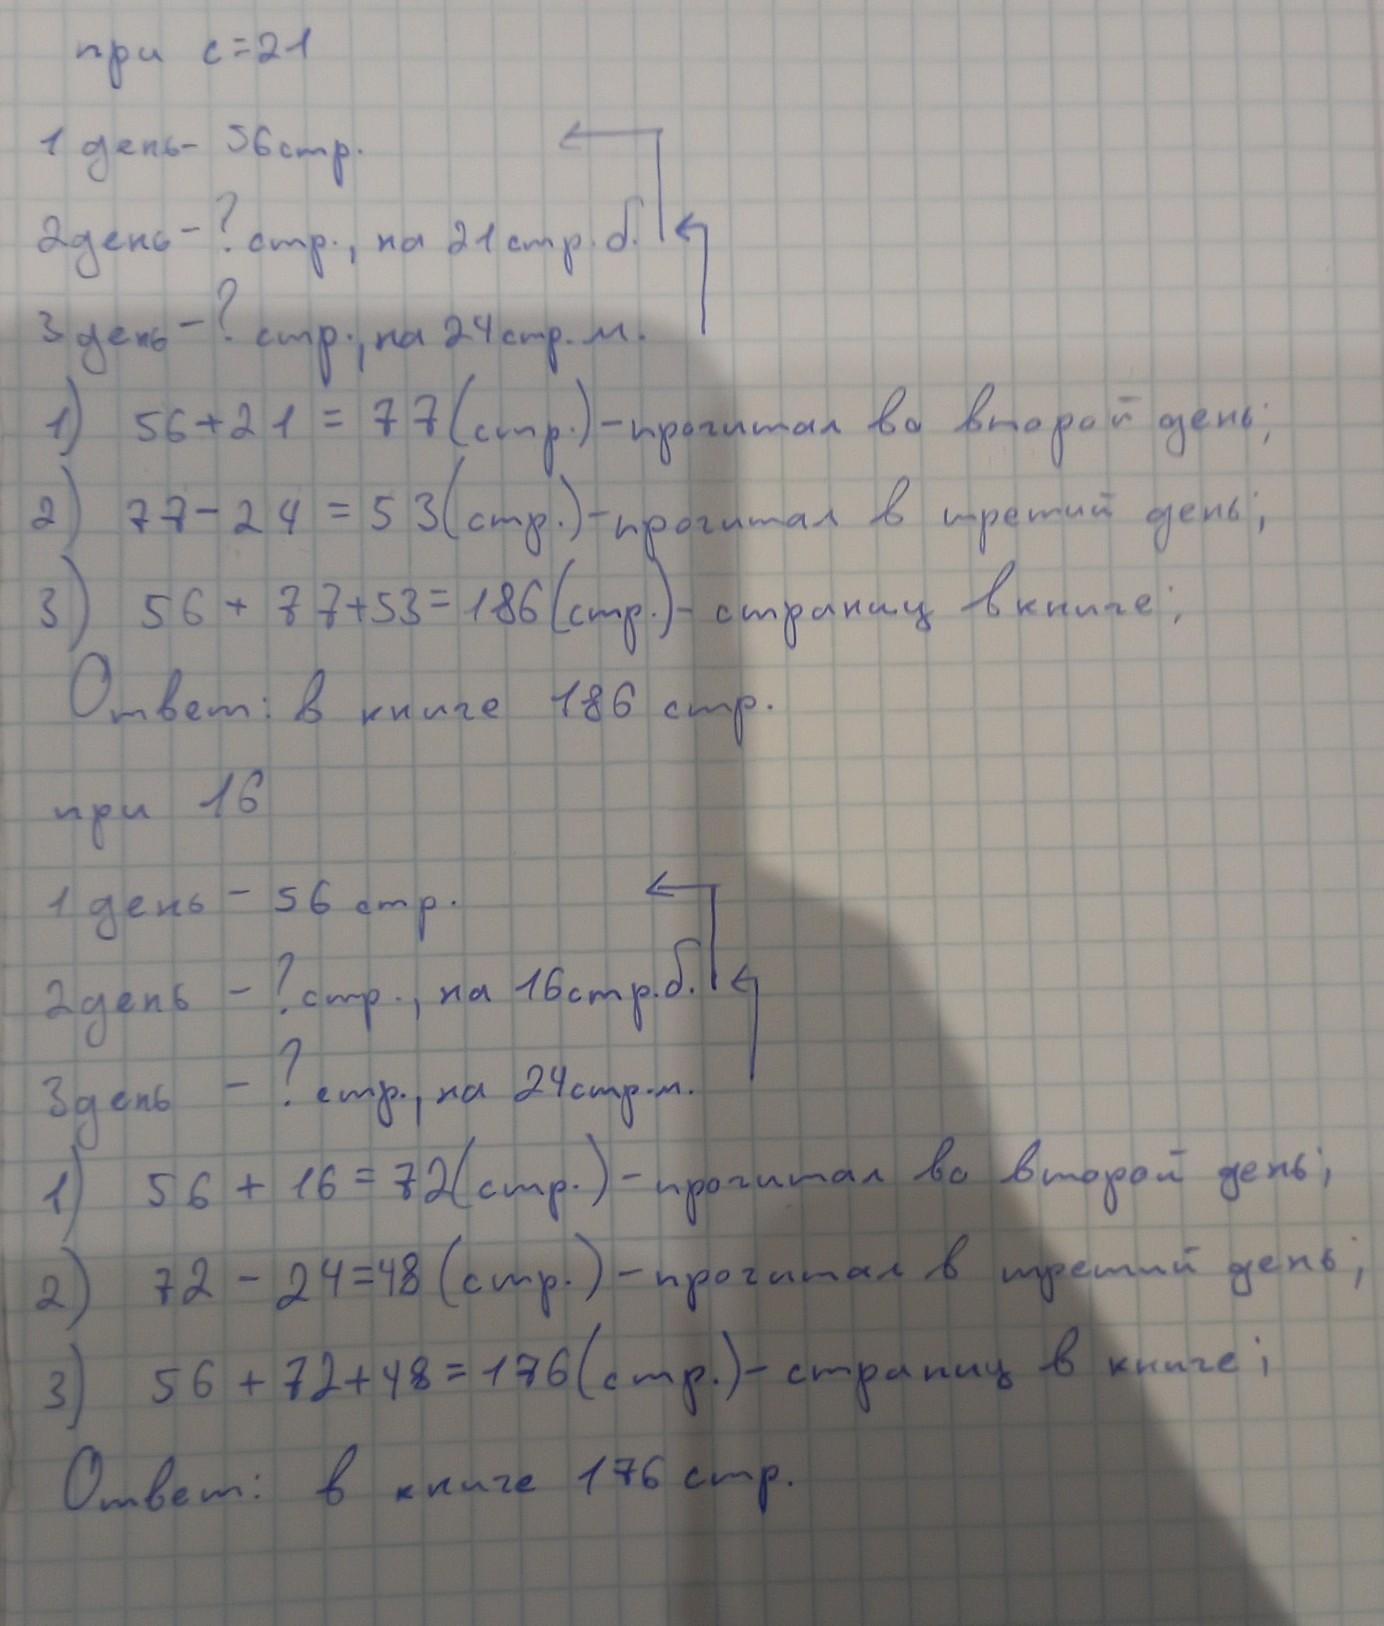 при c=21
1 день- 56стр.
2день-? стр., на 21стр.б.
3день-? стр., на 24стр.м.
1) 56+21=77(стр.)-прочитал во второй день;
2) 77-24=53(стр.)-прочитал в третий день;
3) 56+77+53=186(стр.)-страниц в книге;
Ответ: в книге 186 стр.
при 16
1 день - 56 стр.
2день - ? стр., на 16стр.б.
3день - ? стр., на 24стр.м.
1) 56+16=72(стр.)-прочитал во второй день;
2) 72-24=48(стр.)-прочитал в третий день;
3) 56+72+48=176(стр.)-страниц в книге;
Ответ: в книге 176 стр.